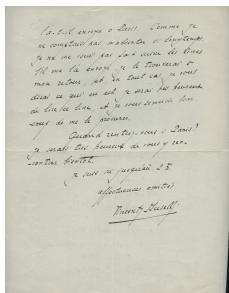 l'a-t-il envoyé à Paris. Comme je
ne comptais pas m'absenter si longtemps
je ne me suis pas fait suivre les
S'il me l'a envoyé je le trouverai à
mon retour, et en tout cas je vous
dirai ce qui en est, je serai très heureux
de lire ce livre et je vous remercie beau
coup de me le procurer.
Quand rentrez-vous à Paris?
je serais très heureux de vous y ren-
contrer bientôt.
je suis ici jusqu'au 25
affectueuses amitiés